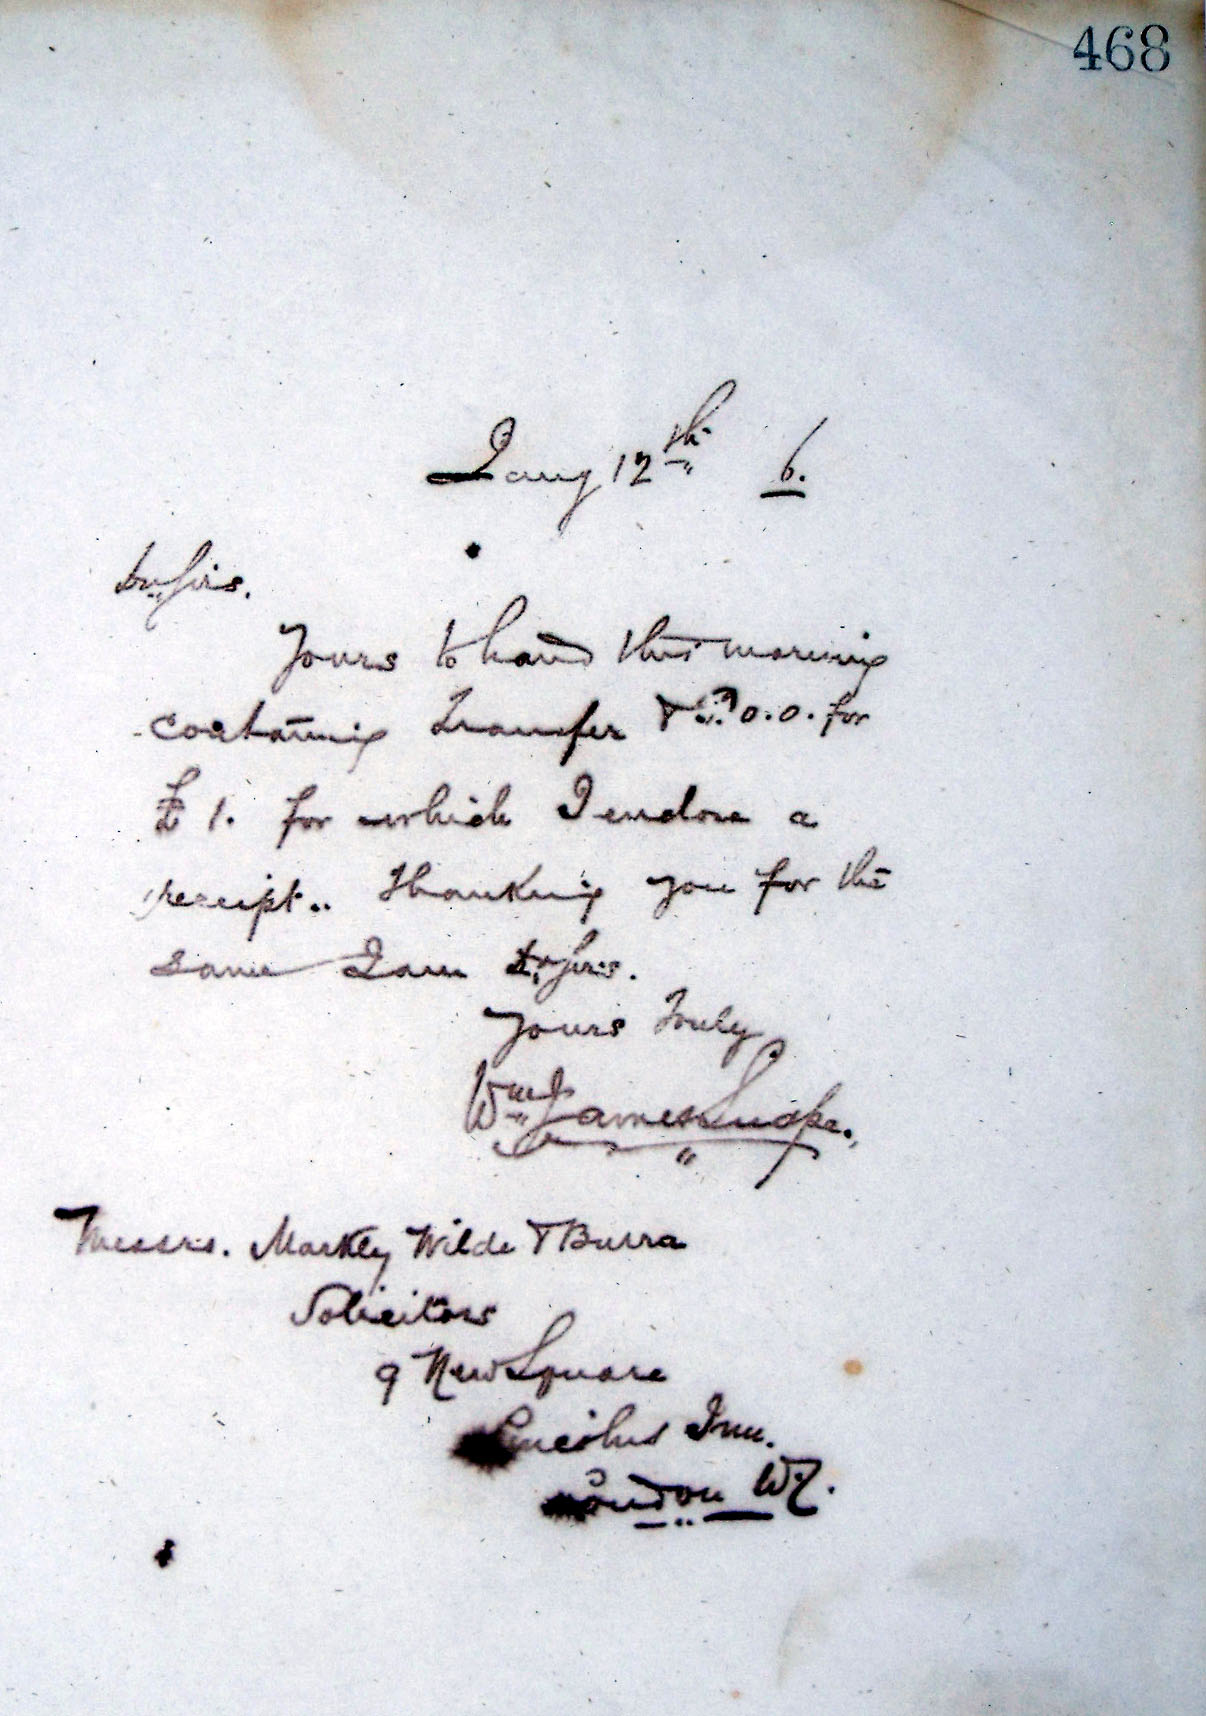 468
Jany 12th 6.
Dr Sirs.
Yours to hand this morning
containing Transfer & P.O.O. for
£1. for which I enclose a
receipt.. Thanking you for the
same I am Dr Sirs.
Yours Truly
Wm James
Messrs. Markby Wilde & Burra
Solicitors
9 New Square
Lincolns Inn.
London W.C.